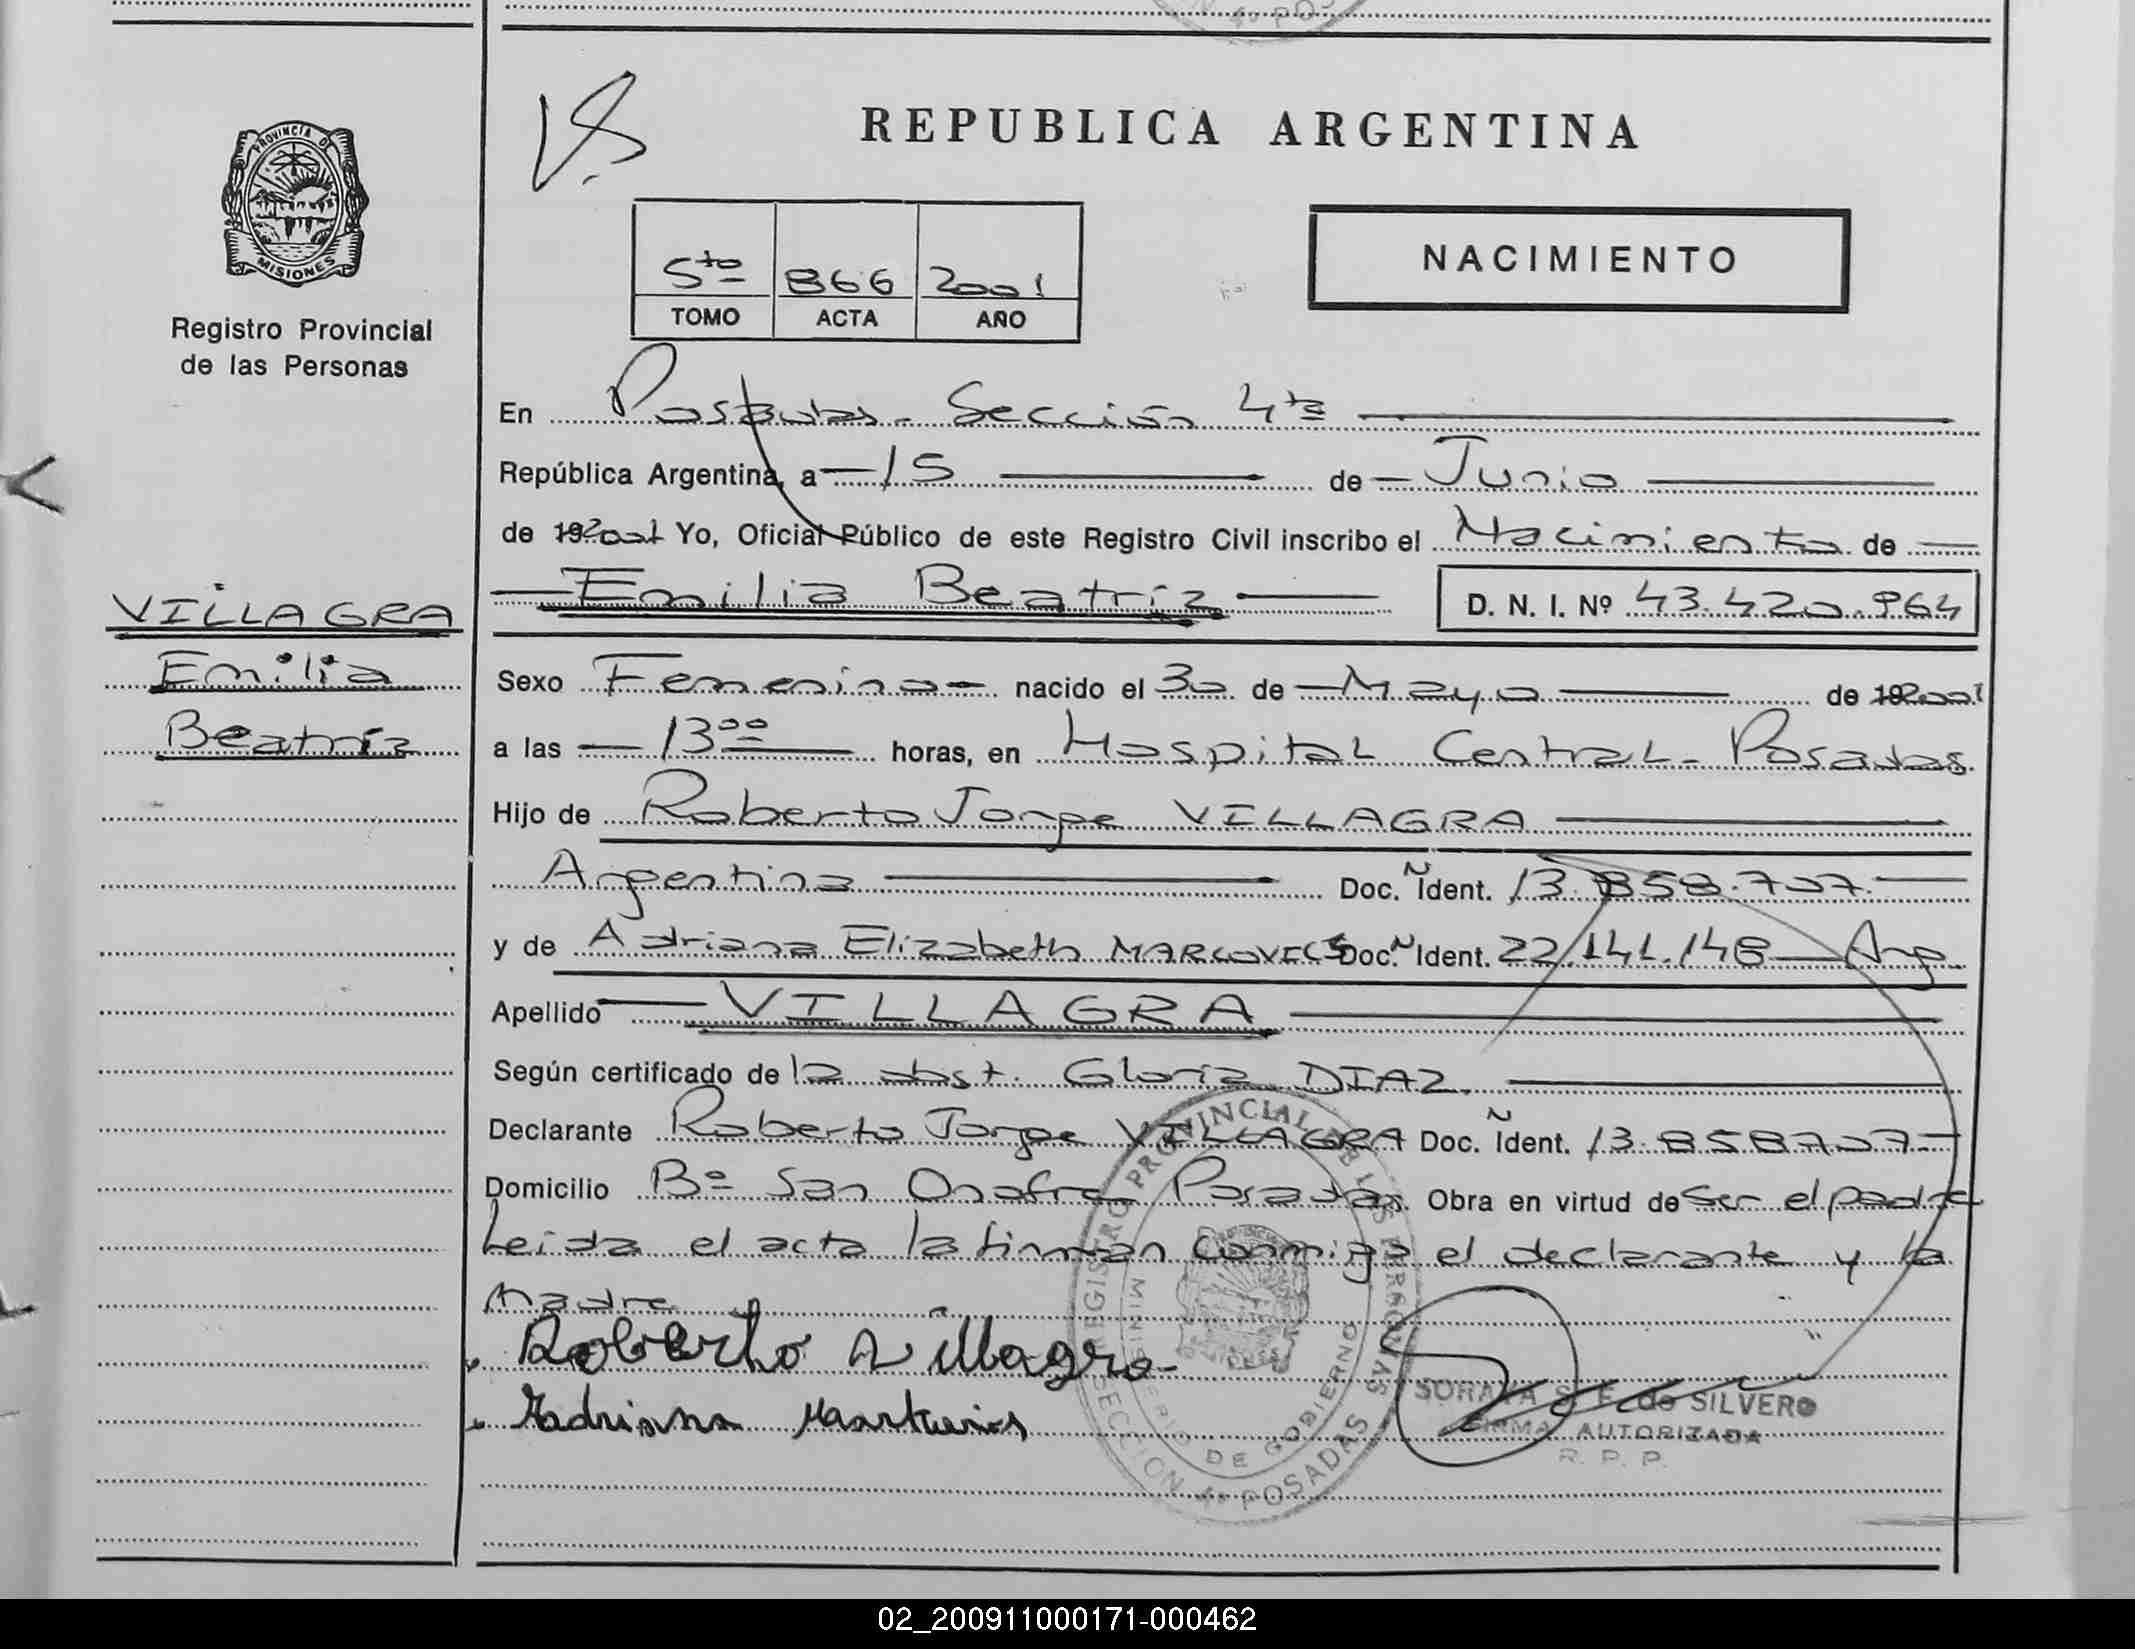 REPUBLICA ARGENTINA
PROVINCIA DE
MISIONES
Registro Provincial
de las Personas
5to 866 2001
TOMO ACTA AÑO
NACIMIENTO
En Posadas - Sección 4ta
República Argentina, a 15 de Junio
de 192001 Yo, Oficial Público de este Registro Civil inscribo el Nacimiento de
Emilia Beatriz D. N. I. Nº 43.420.964
VILLAGRA
Emilia
Beatriz
Sexo Femenino nacido el 30 de Mayo de 192001
a las 13oo horas, en Hospital Central - Posadas
Hijo de Roberto Jorge VILLAGRA
Argentina Doc. Ident. 13.858.707
y de Adriana Elizabeth Doc. Ident. 22.141.148 Arg.
Apellido VILLAGRA
Según certificado de la obst. Gloria DIAZ.
Declarante Roberto Jorge VILLAGRA Doc. Ident. 13.858707
Domicilio Bº San Onofre Posadas Obra en virtud de Ser el padre
Leida el acta la firman conmigo el declarante y la
madre
Roberto Villagra
Adriana
REGISTRO PROVINCIAL DE LAS PERSONAS
MINISTERIO DE GOBIERNO
SECCION 4º POSADAS
SORAYA S. F. de SILVERO
FIRMA AUTORIZADA
R. P. P.
02_200911000171-000462